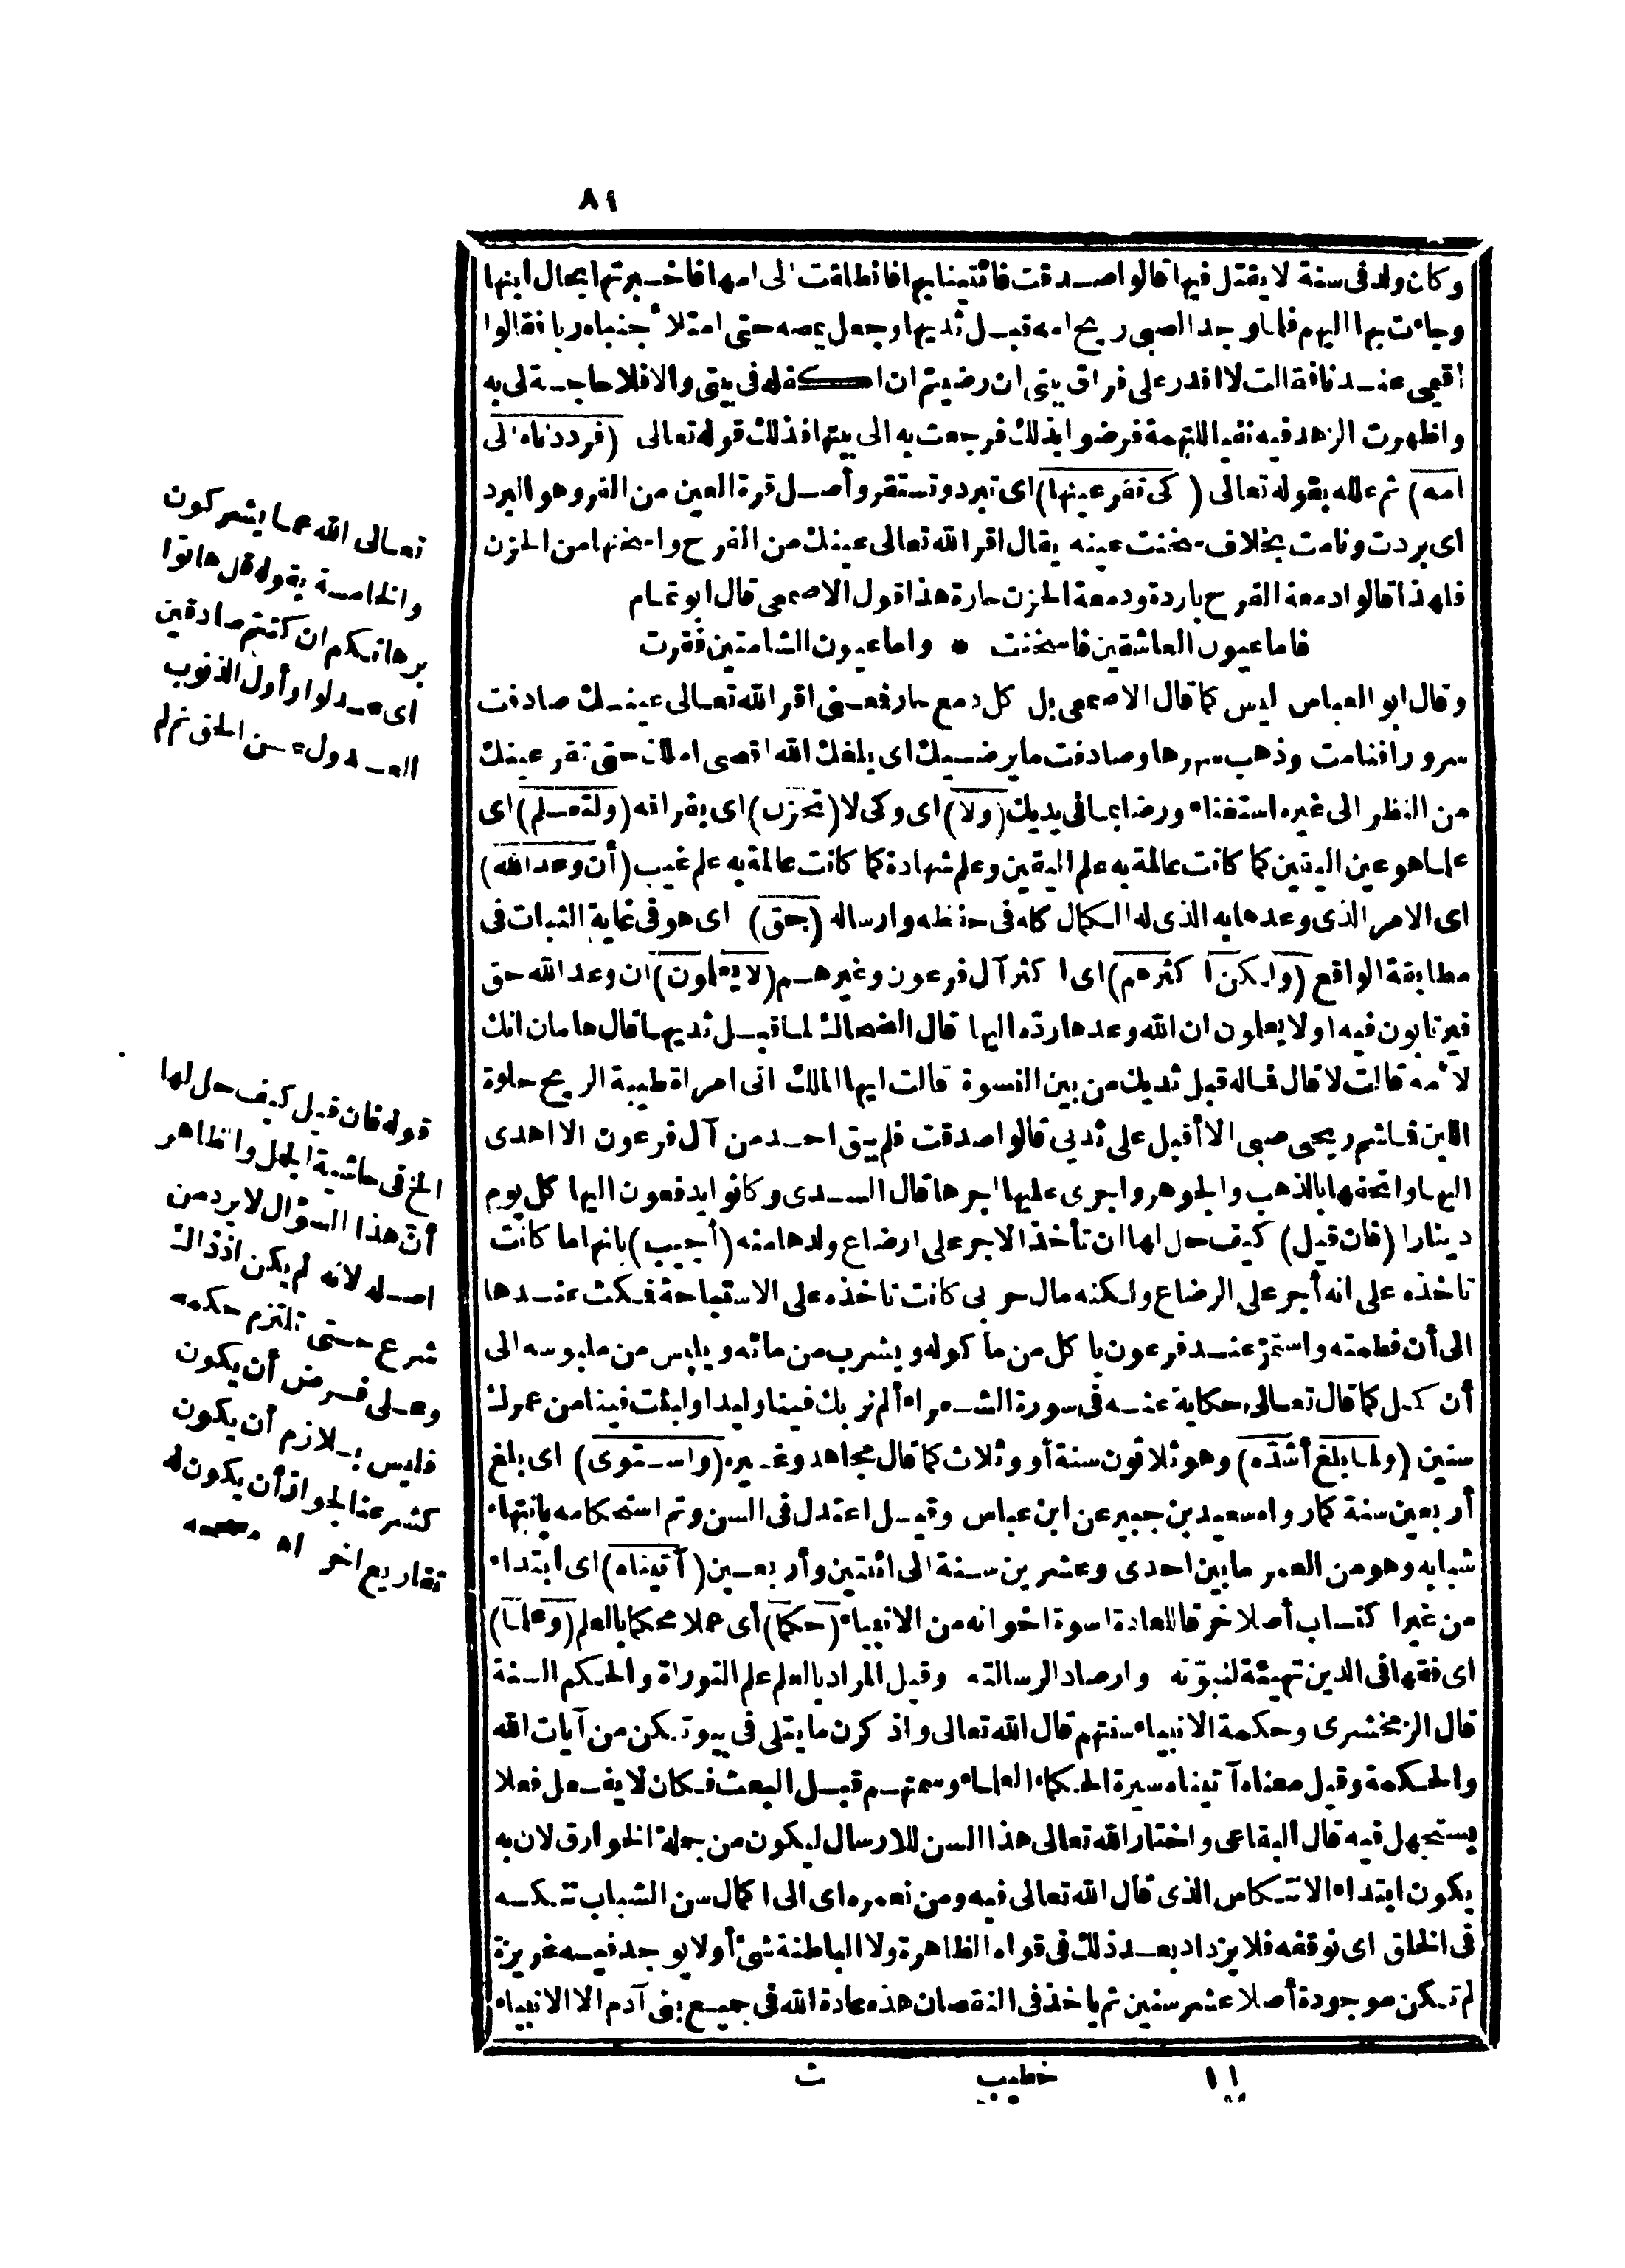 ٨١
وكان ولد فى سنة لا يقتل فيها قالوا صدقت فائتينا بها فانطلقت الى امها فاخبرتها بحال ابنها
وجاءت بها اليهم فلما وجد الصبى ريح امه قبل ثديها وجعل يمصه حتى امتلأ جنباه ريا فقالوا
أقيمى عندنا فقالت لا اقدر على فراق بيتى ان رضيتم ان اكفله فى بيتى والا فلا حاجة لى به
واظهرت الزهد فيه نفيا للتهمة فرضوا بذلك فرجعت به الى بيتها فذلك قوله تعالى (فرددناه الى
امه) ثم علله بقوله تعالى (كى تقر عينها) اى تبرد وتستقر وأصل قرة العين من القر وهو البرد
اى بردت ونامت بخلاف سخنت عينه يقال اقر الله تعالى عينك من الفرح واسخنها من الحزن
فلهذا قالوا دمعة الفرح باردة ودمعة الحزن حارة هذا قول الاصمعى قال ابو تمام
فاما عيون العاشقين فاسخنت * واما عيون الشامتين فقرت
وقال ابو العباس ليس كما قال الاصمعى بل كل دمع حار فمعنى اقر الله تعالى عينك صادفت
سرورا فنامت وذهب سهرها وصادفت ما يرضيك اى بلغك الله اقصى املك حتى تقر عينك
من النظر الى غيره استغناء ورضا بما فى يديك (ولا) اى وكى لا (تحزن) اى بفراقه (ولتعلم) اى
علما هو عين اليقين كما كانت عالمة به علم اليقين وعلم شهادة كما كانت عالمة به علم غيب (أن وعد الله)
اى الامر الذى وعدها به الذى له الكمال كله فى حفظه وارساله (حق) اى هو فى غاية الثبات فى
مطابقة الواقع (ولكن اكثرهم) اى اكثر آل فرعون وغيرهم (لا يعلمون) ان وعد الله حق
فيرتابون فيه اولا يعلمون ان الله وعدها رده اليها قال الضحاك لما قبل ثديها قال هامان انك
لأمه قالت لا قال فما له قبل ثديك من بين النسوة قالت ايها الملك انى امراة طيبة الريح حلوة
اللبن فما شم ريحى صبى الا أقبل على ثديى قالوا صدقت فلم يبق احد من آل فرعون الا اهدى
اليها واتحفها بالذهب والجوهر واجرى عليها اجرها قال السدى وكانوا يدفعون اليها كل يوم
دينارا (فان قيل) كيف حل لها ان تأخذ الاجر على ارضاع ولدها منه (أجيب) بانها ما كانت
تاخذه على انه أجر على الرضاع ولكنه مال حربى كانت تاخذه على الاستباحة فمكث عندها
الى أن فطمته واستمر عند فرعون يا كل من ما كوله ويشرب من مائه ويلبس من ملبوسه الى
أن كمل كما قال تعالى حكاية عنه فى سورة الشعراء ألم نربك فينا وليدا ولبثت فينا من عمرك
سنين (ولما بلغ أشده) وهو ثلاثون سنة أو وثلاث كما قال مجاهد وغيره (واستوى) اى بلغ
أربعين سنة كما رواه سعيد بن جبير عن ابن عباس وقيل اعتدل فى السن وتم استحكامه بانتهاء
شبابه وهو من العمر ما بين احدى وعشرين سنة الى اثنتين وأربعين (آتيناه) اى ابتداء
من غير اكتساب أصلا خرقا للعادة اسوة اخوانه من الانبياء (حكما) أى عملا محكما بالعلم (وعلما)
اى فقها فى الدين تهيئة لنبوّته وارصادا لرسالته وقيل المراد بالعلم علم التوراة والحكم السنة
قال الزمخشرى وحكمة الانبياء سنتهم قال الله تعالى واذكرن ما يتلى فى بيوتكن من آيات الله
والحكمة وقيل معناه آتيناه سيرة الحكماء العلماء وسمتهم قبل البعث فكان لا يفعل فعلا
يستجهل فيه قال البقاعى واختار الله تعالى هذا السن للارسال ليكون من جملة الخوارق لان به
يكون ابتداء الانتكاس الذى قال الله تعالى فيه ومن نعمره اى الى اكمال سن الشباب ننكسه
فى الخلق اى نوقفه فلا يزداد بعد ذلك فى قواه الظاهرة ولا الباطنة شئ أولا يوجد فيه غريزة
لم تكن موجودة أصلا عشر سنين ثم ياخذ فى النقصان هذه عادة الله فى جميع بنى آدم الا الانبياء
١١ خطيب ث
تعالى الله عما يشركون
والخامسة بقوله قل هاتوا
برهانكم ان كنتم صادقين
اى عدلوا وأول الذنوب
العدول عن الحق ثم لم
قوله فان قيل كيف حل لها
الخ فى حاشية الجمل والظاهر
أنّ هذا السؤال لا يرد من
اصله لانه لم يكن اذ ذاك
شرع حتى تلتزم حكمه
وعلى فرض أن يكون
فليس بلازم أن يكون
كشرعنا لجواز أن يكون له
تقاريع اخر اه مصححه